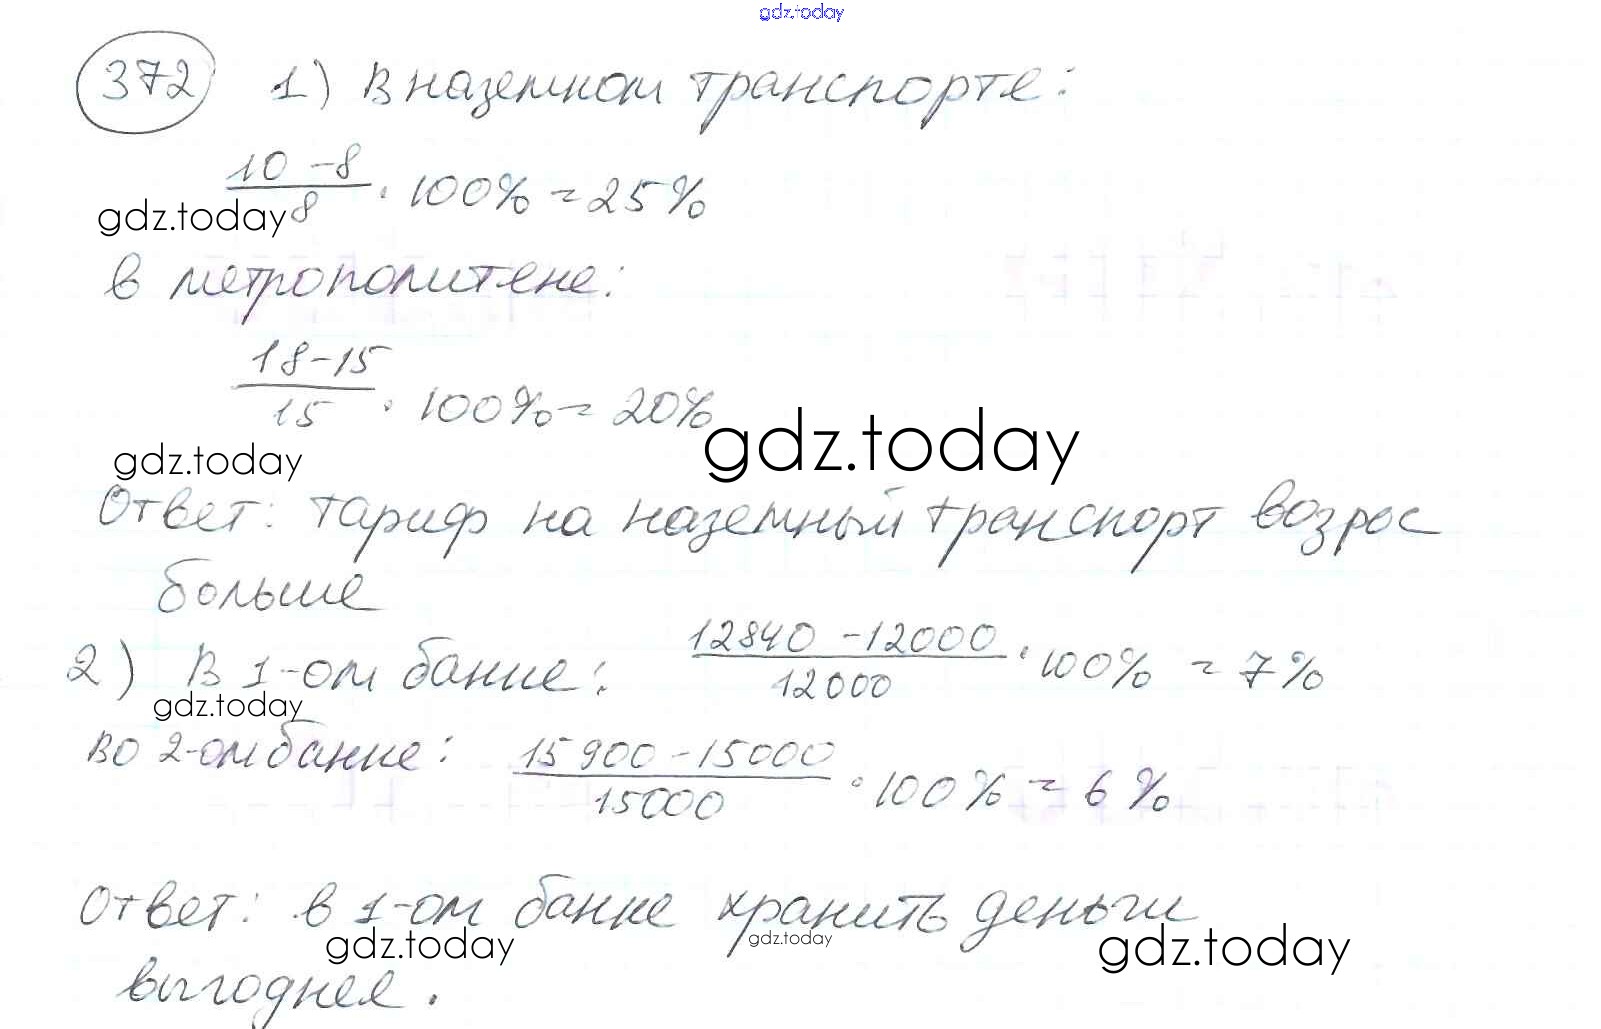 gdz.today
372 1) В наземном транспорте:
10 - 8
8 · 100% = 25%
gdz.today
в метрополитене:
18 - 15
15 · 100% = 20%
gdz.today
gdz.today
Ответ: тариф на наземный транспорт возрос
больше
2) В 1-ом банке: 12840 - 12000
12000 · 100% = 7%
gdz.today
во 2-ом банке: 15900 - 15000
15000 · 100% = 6%
Ответ: в 1-ом банке хранить деньги
gdz.today gdz.today gdz.today
выгоднее.